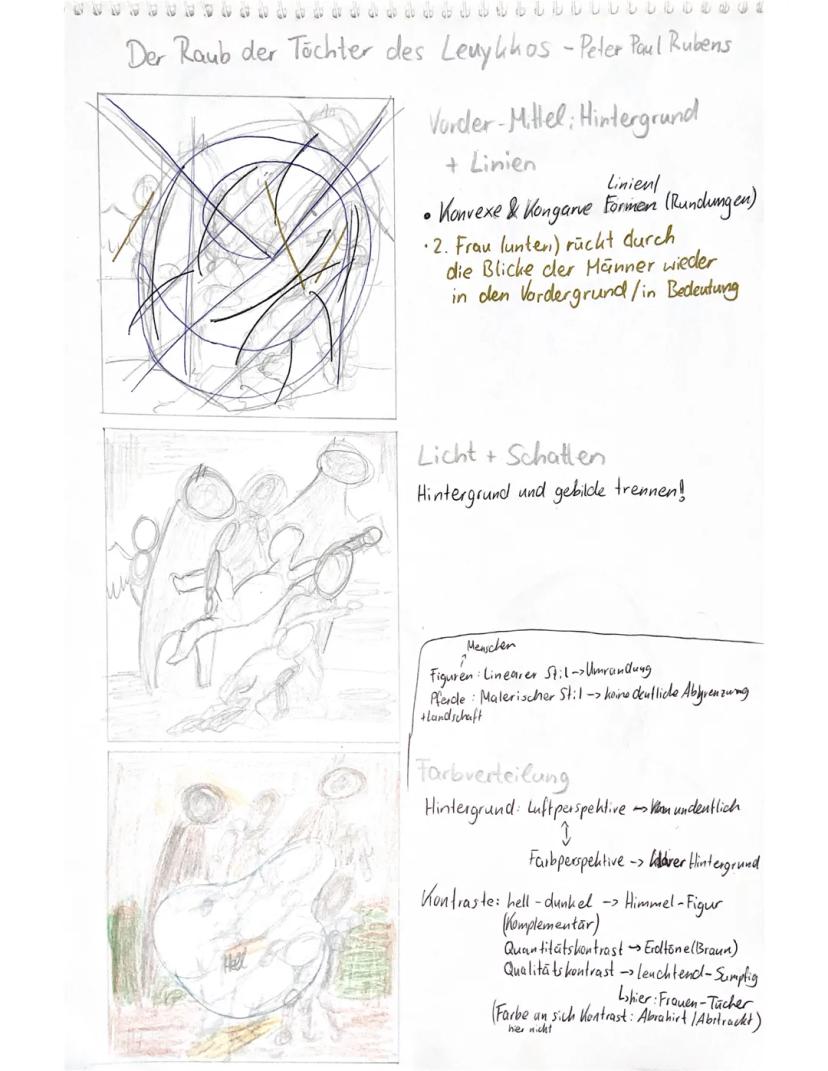 Der Raub der Töchter des Leuykkos - Peter Paul Rubens
Vorder-Mittel; Hintergrund
+ Linien
Linien/
• Konvexe & Kongarve Formen (Rundungen)
• 2. Frau (unten) rückt durch
die Blicke der Männer wieder
in den Vordergrund/in Bedeutung
Licht + Schatten
Hintergrund und gebilde trennen!
Menschen
↑
Figuren: Linearer Stil → Umrandung
Pferde: Malerischer Stil → keine deutliche Abgrenzung
+Landschaft
Farbverteilung
Hintergrund: Luftperspektive → undentlich
↕
Farbperspektive → Hintergrund
Kontraste: hell-dunkel → Himmel-Figur
(Komplementär)
Quantitätskontrast → Erdtöne(Braun)
Qualitätskontrast → leuchtend-Sumpfig
↳hier: Frauen-Tücher
(Farbe an sich Kontrast: Abrahirt/Abstrackt)
hier nicht
Hell